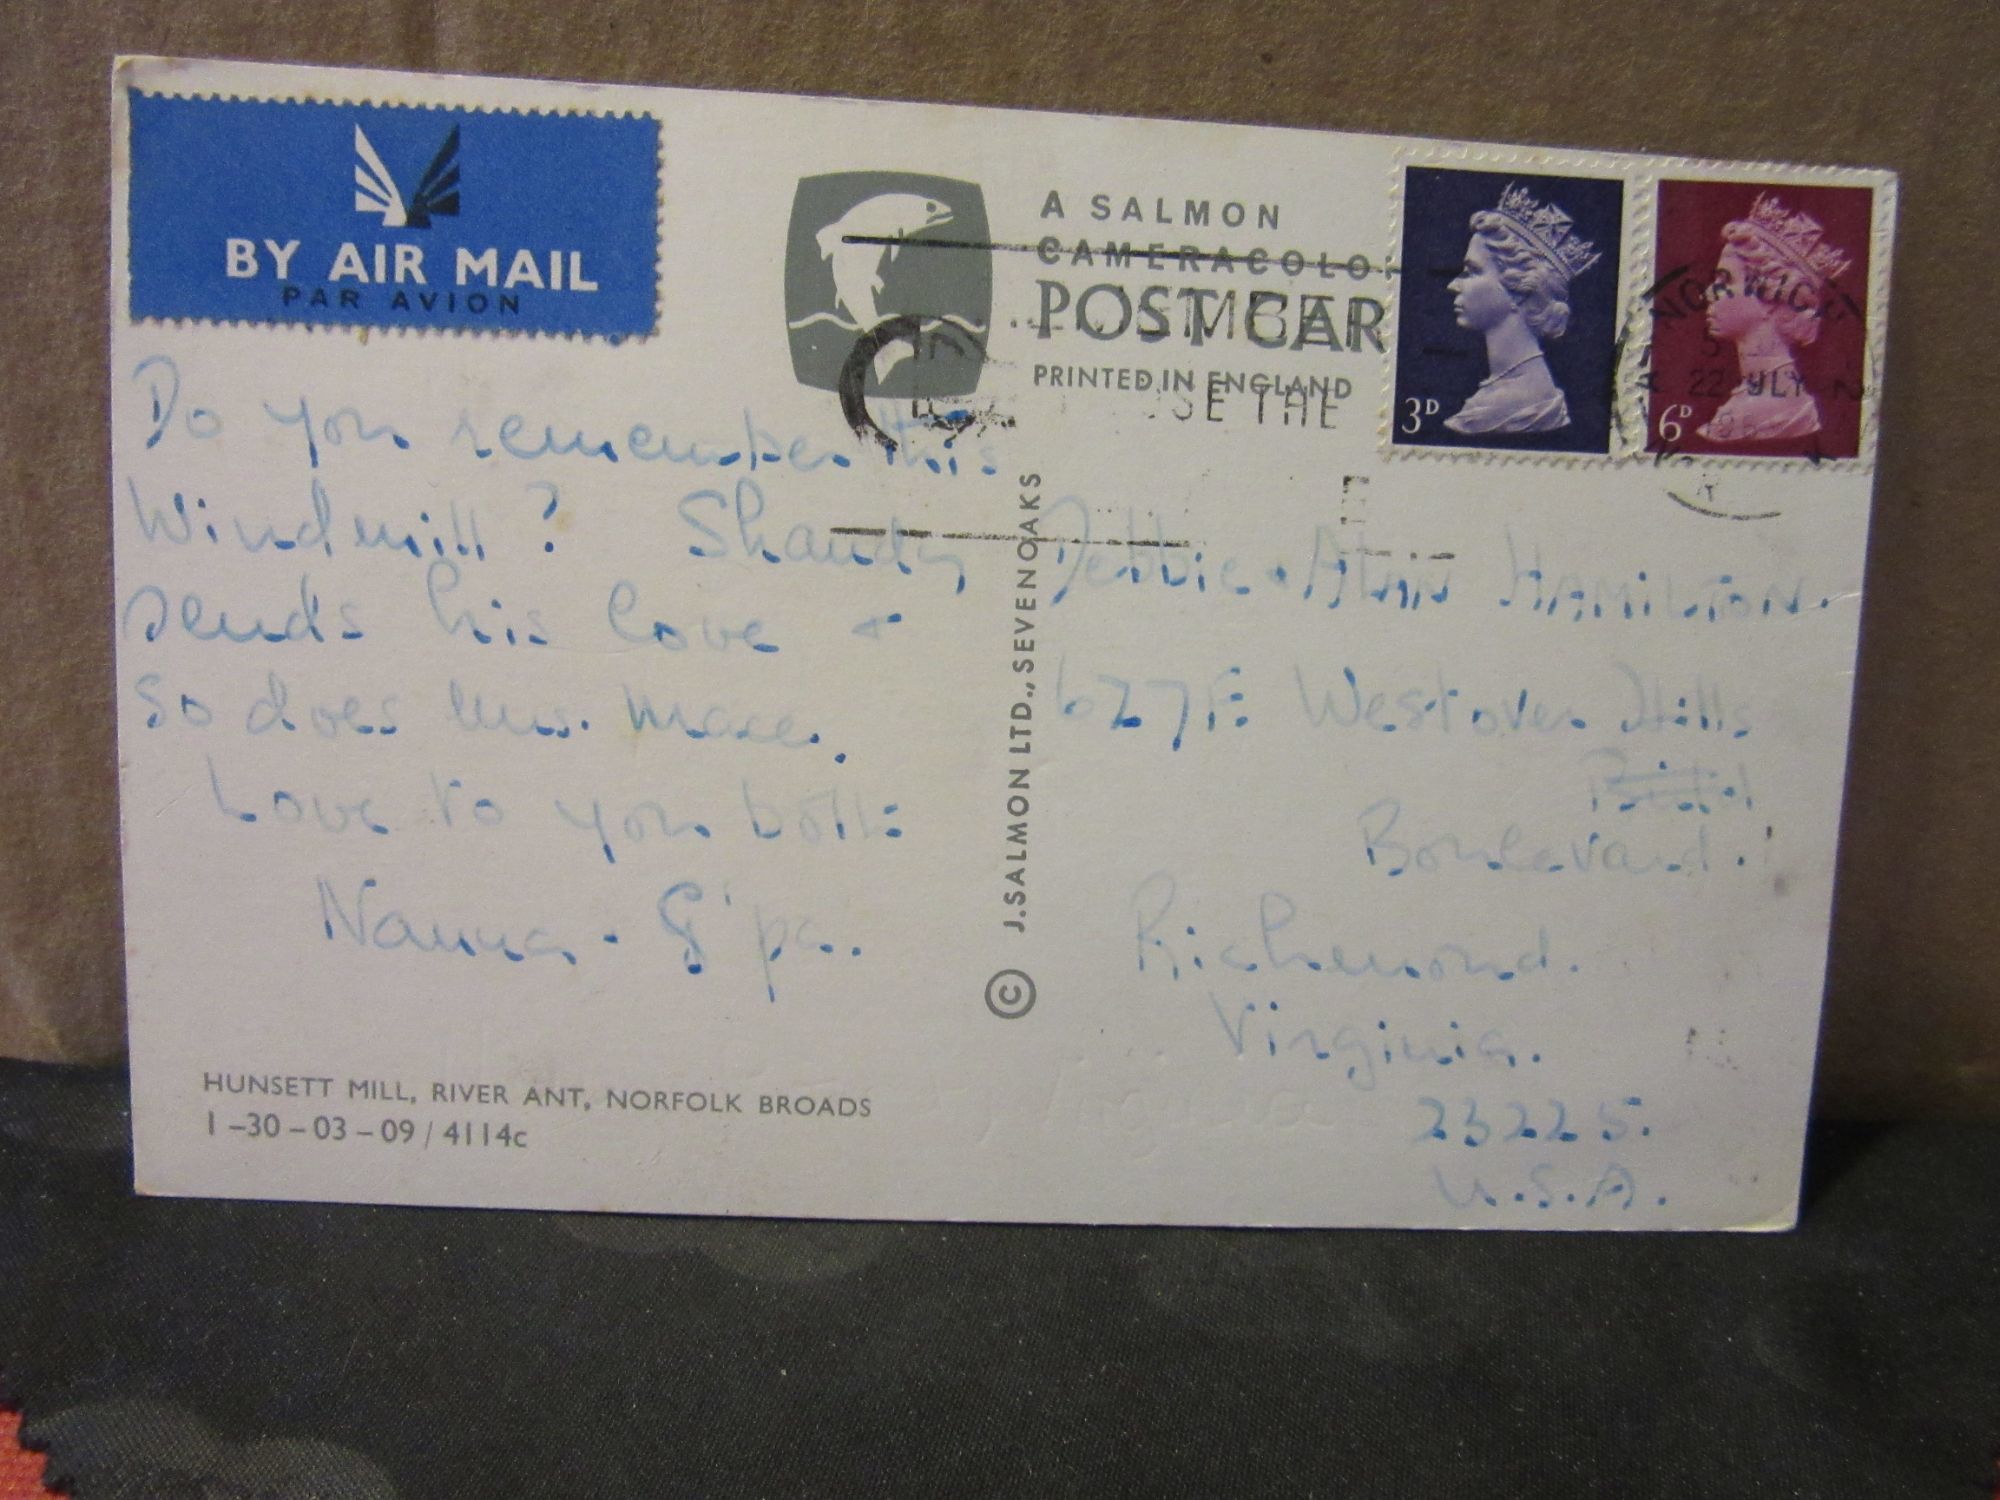 BY AIR MAIL
PAR AVION
A SALMON
CAMERACOLO
POST CAR
PRINTED IN ENGLAND
USE THE
3D
6D
NORWICH
22 JLY
Do you remember this
Windmill? Shandy
sends his love +
so does Mrs. Mace.
Love to you both
Nanna. G'pa.
HUNSETT MILL, RIVER ANT, NORFOLK BROADS
1-30-03-09/4114c
© J. SALMON LTD., SEVENOAKS
Debbie + Alan HAMILTON.
Westover Hills
Boulevard.
Richmond.
Virginia.
23225.
U.S.A.